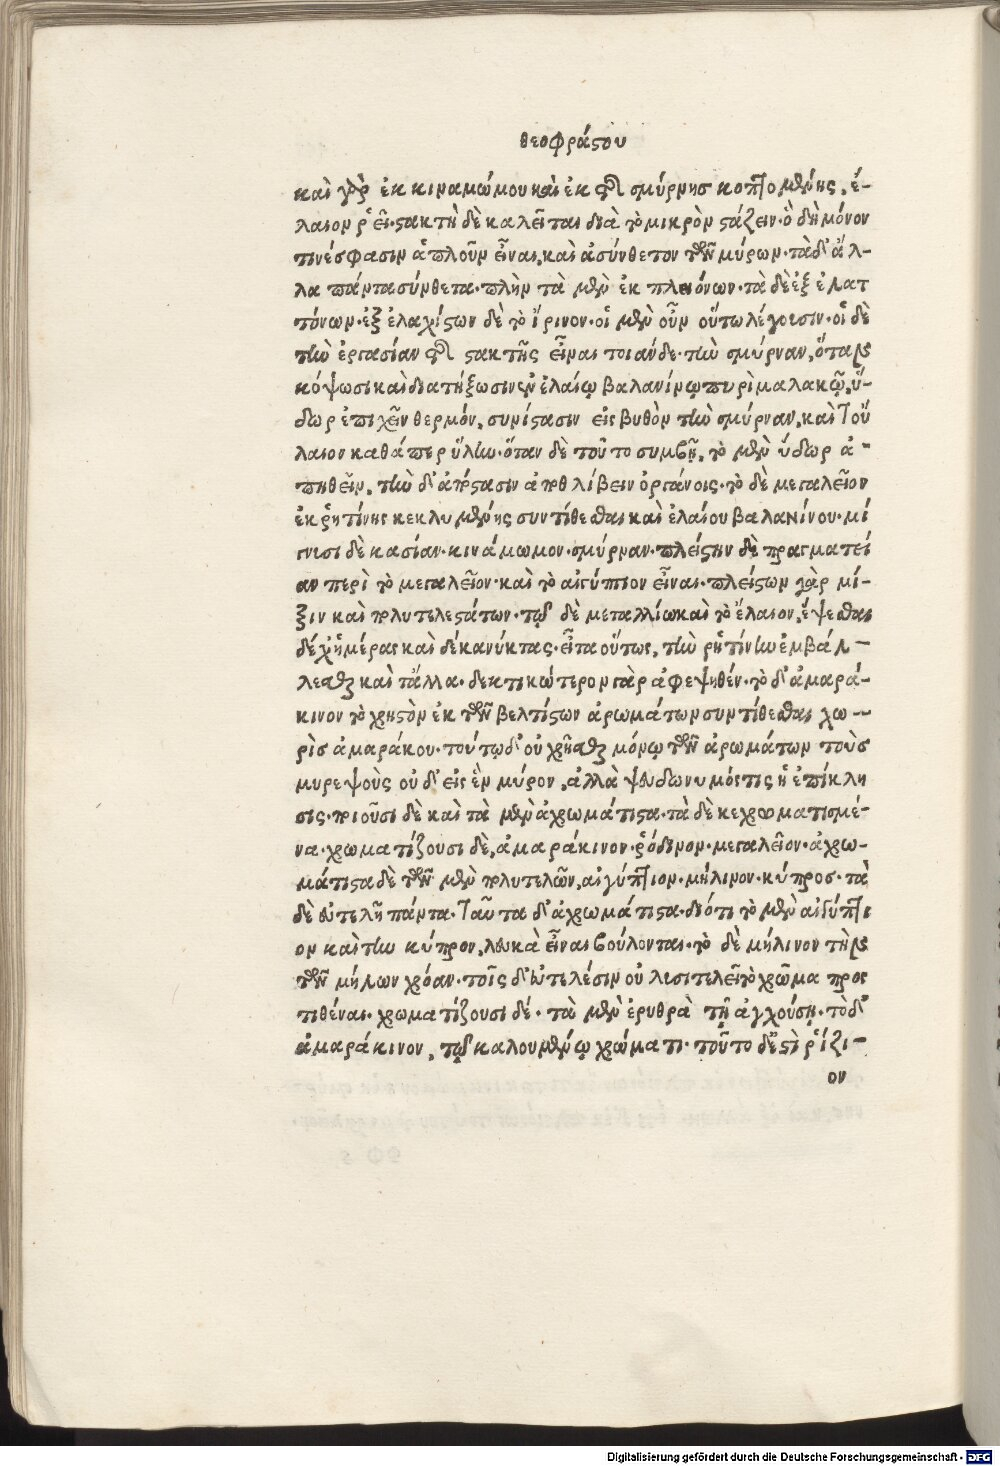 θεοφράστου
καὶ γὰρ ἐκ κιναμώμου καὶ ἐκ τῆς σμύρνης κοπτομένης, ἔ-
λαιον ῥεῖ· στακτὴ δὲ καλεῖται διὰ τὸ μικρὸν στάζειν· ὃ δὴ μόνον
τινές φασιν ἁπλοῦν εἶναι, καὶ ἀσύνθετον τῶν μύρων· τὰ δ' ἄλ-
λα πάντα σύνθετα· πλὴν τὰ μὲν ἐκ πλειόνων· τὰ δὲ ἐξ ἐλατ
τόνων· ἐξ ἐλαχίστων δὲ τὸ ἴρινον· οἱ μὲν οὖν οὕτω λέγουσιν· οἱ δὲ
τὴν ἐργασίαν τῆς στακτῆς εἶναι τοιάνδε· τὴν σμύρναν, ὅταν
κόψωσι καὶ διατήξωσιν ἐν ἐλαίῳ βαλανίνῳ πυρὶ μαλακῷ, ὕ-
δωρ ἐπιχεῖν θερμόν, συνίστασιν εἰς βυθὸν τὴν σμύρναν, καὶ τοὔ
λαιον καθάπερ ὕλην· ὅταν δὲ τοῦτο συμβῇ, τὸ μὲν ὕδωρ ἀ-
πηθεῖν, τὴν δ' ὑπόστασιν ἀποθλίβειν ὀργάνοις· τὸ δὲ μεγαλεῖον
ἐκ ῥητίνης κεκλυμένης συντίθεσθαι καὶ ἐλαίου βαλανίνου· μί
γνυσι δὲ κασίαν· κινάμωμον· σμύρναν· πλείστην δὲ πραγματεί
αν περὶ τὸ μεγαλεῖον· καὶ τὸ αἰγύπτιον εἶναι· πλείστων γὰρ μί-
ξιν καὶ πολυτελεστάτων· τῷ δὲ μεταλλίῳ καὶ τὸ ἔλαιον, ἕψεσθαι
δέχ' ἡμέρας καὶ δέκα νύκτας· εἶτα οὕτως, τὴν ῥητίνην ἐμβάλ-
λεσθαι καὶ τἄλλα· δεκτικώτερον γὰρ ἀφεψηθέν· τὸ δ' ἀμαρά-
κινον τὸ χρηστὸν ἐκ τῶν βελτίστων ἀρωμάτων συντίθεσθαι χω--
ρὶς ἀμαράκου· τούτῳ δ' οὐ χρῆσθαι μόνῳ τῶν ἀρωμάτων τοὺς
μυρεψοὺς οὐδ' εἰς ἓν μύρον, ἀλλὰ ψευδώνυμός τις ἡ ἐπίκλη
σις· ποιοῦσι δὲ καὶ τὰ μὲν ἀχρωμάτιστα· τὰ δὲ κεχρωματισμέ-
να· χρωματίζουσι δὲ, ἀμαράκινον· ῥόδινον· μεγαλεῖον· ἀχρω-
μάτιστα δὲ τῶν μὲν πολυτελῶν, αἰγύπτιον· μήλινον· κύπρος· τὰ
δὲ εὐτελῆ πάντα· ταῦτα δ' ἀχρωμάτιστα· διότι τὸ μὲν αἰγύπτι
ον καὶ τὴν κύπρον, λευκὰ εἶναι βούλονται· τὸ δὲ μήλινον τὴν
τῶν μήλων χρόαν· τοῖς δ' εὐτελέσιν οὐ λυσιτελεῖ τὸ χρῶμα προσ
τιθέναι· χρωματίζουσι δέ· τὰ μὲν ἐρυθρὰ τῇ ἀγχούσῃ· τὸ δ'
ἀμαράκινον, τῷ καλουμένῳ χρώματι· τοῦτο δ' ἐστὶ ῥίζι-
ον
Digitalisierung gefördert durch die Deutsche Forschungsgemeinschaft - DFG